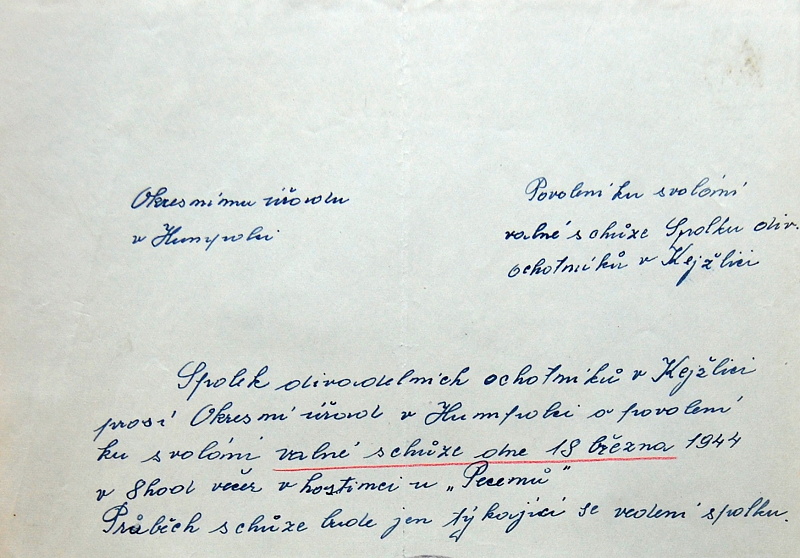 Okresnímu úřadu
v Humpolci
Povolení ku svolání
valné schůze Spolku div.
ochotníků v Kejžlici
Spolek divadelních ochotníků v Kejžlici
prosí Okresní úřad v Humpolci o povolení
ku svolání valné schůze dne 18 března 1944
v 8 hod večer v hostinci u „Pecenů"
Průběch schůze bude jen týkající se vedení spolku.